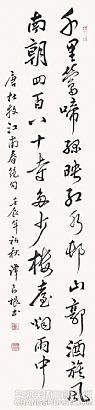 千里鶯啼綠映紅水邨山郭酒旗風
南朝四百八十寺多少樓臺烟雨中
唐杜牧江南春絕句 壬辰年初秋 譚 根書